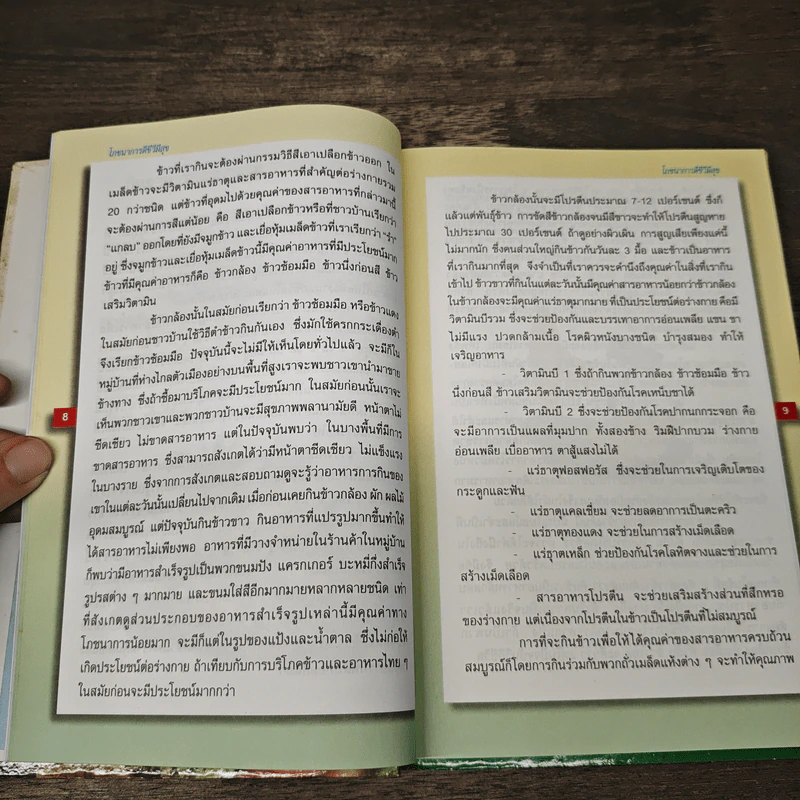 โภชนาการดีชีวีมีสุข
ข้าวที่เรากินจะต้องผ่านกรรมวิธีสีเอาเปลือกข้าวออก ใน
เมล็ดข้าวจะมีวิตามินแร่ธาตุและสารอาหารที่สำคัญต่อร่างกายรวม
20 กว่าชนิด แต่ข้าวที่อุดมไปด้วยคุณค่าของสารอาหารที่กล่าวมานี้
จะต้องผ่านการสีแต่น้อย คือ สีเอาเปลือกข้าวหรือที่ชาวบ้านเรียกว่า
"แกลบ" ออกโดยที่ยังมีจมูกข้าว และเยื่อหุ้มเมล็ดข้าวที่เราเรียกว่า "รำ"
อยู่ ซึ่งจมูกข้าวและเยื่อหุ้มเมล็ดข้าวนี้มีคุณค่าอาหารที่มีประโยชน์มาก
ข้าวที่มีคุณค่าอาหารก็คือ ข้าวกล้อง ข้าวซ้อมมือ ข้าวนึ่งก่อนสี ข้าว
เสริมวิตามิน
ข้าวกล้องนั้นในสมัยก่อนเรียกว่า ข้าวซ้อมมือ หรือข้าวแดง
ในสมัยก่อนชาวบ้านใช้วิธีตำข้าวกินกันเอง ซึ่งมักใช้ครกกระเดื่องตำ
จึงเรียกข้าวซ้อมมือ ปัจจุบันนี้จะไม่มีให้เห็นโดยทั่วไปแล้ว จะมีก็ใน
หมู่บ้านที่ห่างไกลตัวเมืองอย่างบนพื้นที่สูงเราจะพบชาวเขานำมาขาย
ข้างทาง ซึ่งถ้าซื้อมาบริโภคจะมีประโยชน์มาก ในสมัยก่อนนั้นเราจะ
เห็นพวกชาวเขาและพวกชาวบ้านจะมีสุขภาพพลานามัยดี หน้าตาไม่
ซีดเซียว ไม่ขาดสารอาหาร แต่ในปัจจุบันพบว่า ในบางพื้นที่มีการ
ขาดสารอาหาร ซึ่งสามารถสังเกตได้ว่ามีหน้าตาซีดเซียว ไม่แข็งแรง
ในบางราย ซึ่งจากการสังเกตและสอบถามดูจะรู้ว่าอาหารการกินของ
เขาในแต่ละวันนั้นเปลี่ยนไปจากเดิม เมื่อก่อนเคยกินข้าวกล้อง ผัก ผลไม้
อุดมสมบูรณ์ แต่ปัจจุบันกินข้าวขาว กินอาหารที่แปรรูปมากขึ้นทำให้
ได้สารอาหารไม่เพียงพอ อาหารที่มีวางจำหน่ายในร้านค้าในหมู่บ้าน
ก็พบว่ามีอาหารสำเร็จรูปเป็นพวกขนมปัง แครกเกอร์ บะหมี่กึ่งสำเร็จ
รูปรสต่าง ๆ มากมาย และขนมใส่สีอีกมากมายหลากหลายชนิด เท่า
ที่สังเกตดูส่วนประกอบของอาหารสำเร็จรูปเหล่านี้มีคุณค่าทาง
โภชนาการน้อยมาก จะมีก็แต่ในรูปของแป้งและน้ำตาล ซึ่งไม่ก่อให้
เกิดประโยชน์ต่อร่างกาย ถ้าเทียบกับการบริโภคข้าวและอาหารไทย ๆ
ในสมัยก่อนจะมีประโยชน์มากกว่า
8
โภชนาการดีชีวีมีสุข
ข้าวกล้องนั้นจะมีโปรตีนประมาณ 7-12 เปอร์เซนต์ ซึ่งก็
แล้วแต่พันธุ์ข้าว การขัดสีข้าวกล้องจนมีสีขาวจะทำให้โปรตีนสูญหาย
ไปประมาณ 30 เปอร์เซนต์ ถ้าดูอย่างผิวเผิน การสูญเสียเพียงแค่นี้
ไม่มากนัก ซึ่งคนส่วนใหญ่กินข้าวกันวันละ 3 มื้อ และข้าวเป็นอาหาร
ที่เรากินมากที่สุด จึงจำเป็นที่เราควรจะคำนึงถึงคุณค่าในสิ่งที่เรากิน
เข้าไป ข้าวขาวที่กินในแต่ละวันนั้นมีคุณค่าสารอาหารน้อยกว่าข้าวกล้อง
ในข้าวกล้องจะมีคุณค่าแร่ธาตุมากมาย ที่เป็นประโยชน์ต่อร่างกาย คือมี
วิตามินบีรวม ซึ่งจะช่วยป้องกันและบรรเทาอาการอ่อนเพลีย แขน ขา
ไม่มีแรง ปวดกล้ามเนื้อ โรคผิวหนังบางชนิด บำรุงสมอง ทำให้
เจริญอาหาร
- วิตามินบี 1 ซึ่งถ้ากินพวกข้าวกล้อง ข้าวซ้อมมือ ข้าว
นึ่งก่อนสี ข้าวเสริมวิตามินจะช่วยป้องกันโรคเหน็บชาได้
- วิตามินบี 2 ซึ่งจะช่วยป้องกันโรคปากนกกระจอก คือ
จะมีอาการเป็นแผลที่มุมปาก ทั้งสองข้าง ริมฝีปากบวม ร่างกาย
อ่อนเพลีย เบื่ออาหาร ตาสู้แสงไม่ได้
- แร่ธาตุฟอสฟอรัส ซึ่งจะช่วยในการเจริญเติบโตของ
กระดูกและฟัน
- แร่ธาตุแคลเซี่ยม จะช่วยลดอาการเป็นตะคริว
- แร่ธาตุทองแดง จะช่วยในการสร้างเม็ดเลือด
- แร่ธาตุเหล็ก ช่วยป้องกันโรคโลหิตจางและช่วยในการ
สร้างเม็ดเลือด
- สารอาหารโปรตีน จะช่วยเสริมสร้างส่วนที่สึกหรอ
ของร่างกาย แต่เนื่องจากโปรตีนในข้าวเป็นโปรตีนที่ไม่สมบูรณ์
การที่จะกินข้าวเพื่อให้ได้คุณค่าของสารอาหารครบถ้วน
สมบูรณ์ก็โดยการกินร่วมกับพวกถั่วเมล็ดแห้งต่าง ๆ จะทำให้คุณภาพ
9